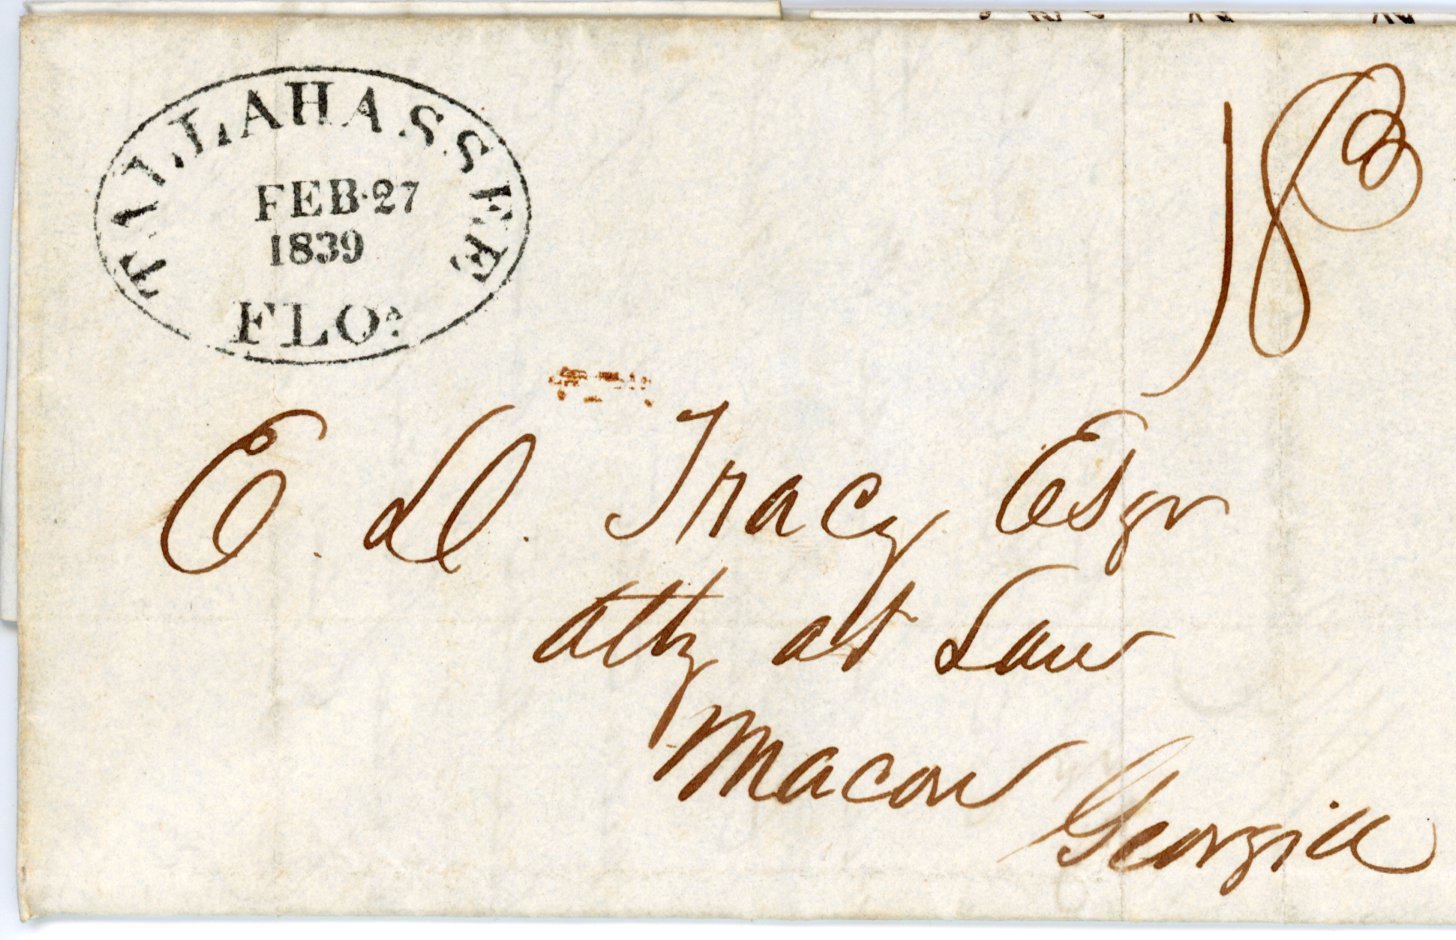 TALLAHASSEE
FEB·27
1839
FLOª
18¾
E. D. Tracy Esqr
atty at Law
Macon
Georgia